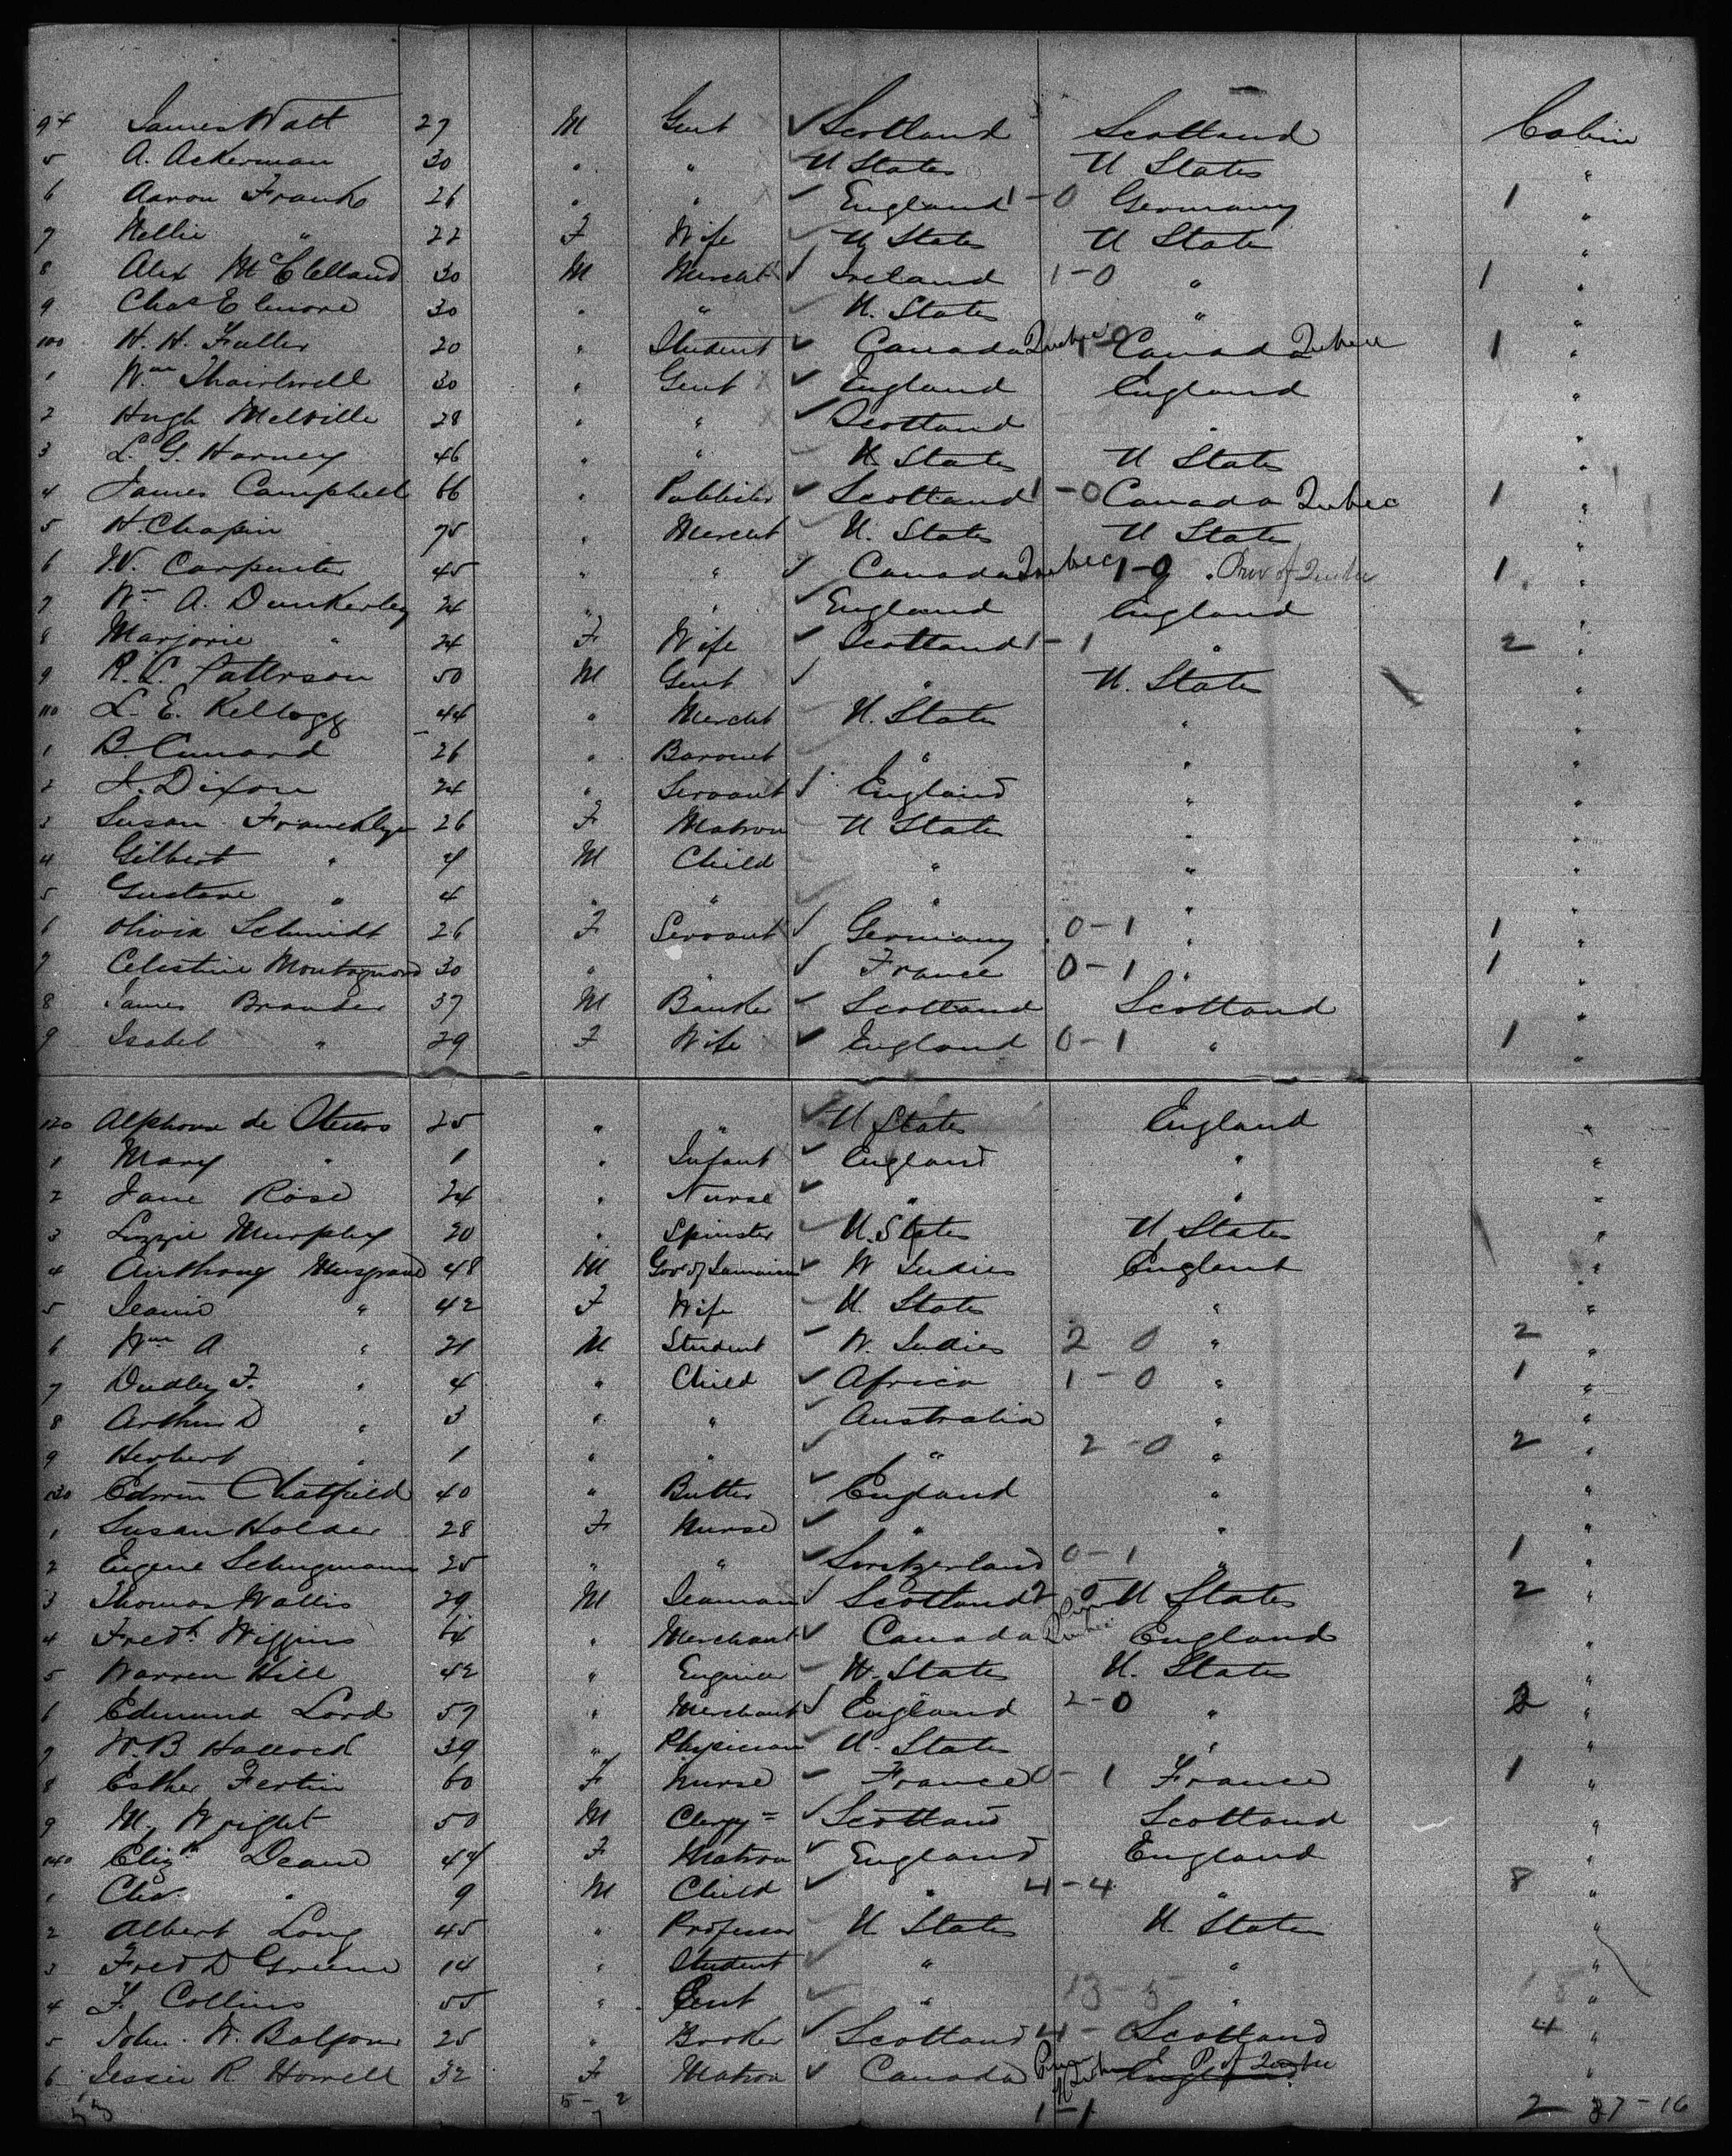 94 James Watt 27 M Gent Scotland Scotland Cabin
5 A. Ackerman 30 " " U States U States "
6 Aaron Frank 26 " " England 1-0 Germany 1 "
7 Nellie " 22 F Wife U States U States "
8 Alex McClelland 30 M Mercht Ireland 1-0 " 1 "
9 Chas Elmore 30 " " U. States " "
100 H. H. Fuller 20 " Student Canada Quebec 1-0 Canada Quebec 1 "
1 Wm Thairlwell 30 " Gent England England "
2 Hugh Melville 28 " " Scotland " "
3 L. G. Harney 46 " " U States U States "
4 James Campbell 66 " Publisher Scotland 1-0 Canada Quebec 1 "
5 H. Chapin 75 " Mercht U. States U States "
6 W. Carpenter 45 " " Canada Quebec 1-0 " Prov of Quebec 1 "
7 Wm A. Dunkerley 24 " " England England "
8 Marjorie " 24 F Wife Scotland 1-1 " 2 "
9 R. C. Patterson 50 M Gent " U. States "
110 L. E. Kellogg 44 " Mercht U. States " "
1 B. Cunard 26 " Baronet " " "
2 J. Dixon 24 " Servant England " "
3 Susan Francklyn 26 F Matron U States " "
4 Gilbert " 7 M Child " " "
5 Gustave " 4 " " " " "
6 Olivia Schmidt 26 F Servant Germany 0-1 " 1 "
7 Celestine 30 " " France 0-1 " 1 "
8 James Brander 37 M Banker Scotland Scotland "
9 Isabel " 29 F Wife England 0-1 " 1 "
120 Alphonse de 25 " " U States England "
1 Mary " 1 " Infant England " "
2 Jane Rose 24 " Nurse " " "
3 Lizzie Murphy 20 " Spinster U. States U States "
4 Anthony Musgrave 48 M Gov of Jamaica W Indies England "
5 Jeanie " 42 F Wife U. States " "
6 Wm A " 21 M Student W. Indies 2 0 " 2 "
7 Dudley F. " 4 " Child Africa 1-0 " 1 "
8 Arthur D " 3 " " Australia " "
9 Herbert " 1 " " " 2-0 " 2 "
130 Edwin Chatfield 40 " Butler England " "
1 Susan Holder 28 F Nurse " " "
2 Eugene 25 " " Switzerland 0-1 " 1 "
3 Thomas Wallis 29 M Seaman Scotland 2-0 U States 2 "
4 Fredk Wiggins 64 " Merchant Canada Quebec England "
5 Warren Hill 42 " Engineer U. States U. States "
6 Edmund Lord 59 " Merchant England 2-0 " 2 "
7 W. B Hallock 39 " Physician U. States " "
8 Esther Fertin 60 F Nurse France 0-1 France 1 "
9 M. Wright 50 M Clergy= Scotland Scotland "
140 Elizth Deane 44 F Matron England England "
1 Chas. " 9 M Child " 4-4 " 8 "
2 Albert Long 45 " Professor U States U. States "
3 Fred D Greene 14 " Student " " "
4 F. Collins 55 " Gent " 13-5 " 18 "
5 John. W. Balfour 25 " Broker Scotland 4-0 Scotland 4 "
6 Jessie R Howell 32 F Matron Canada P of Quebec England "
53 5-2 7 1-1 2 37-16